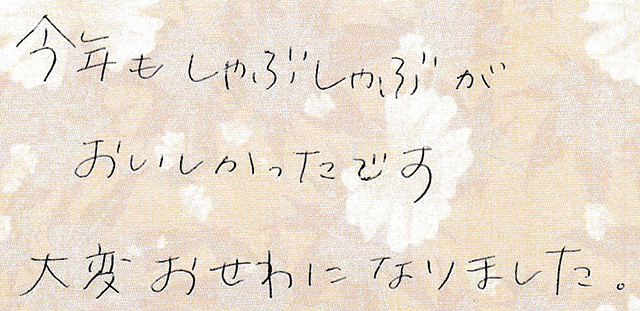 今年もしゃぶしゃぶが
おいしかったです
大変おせわになりました。